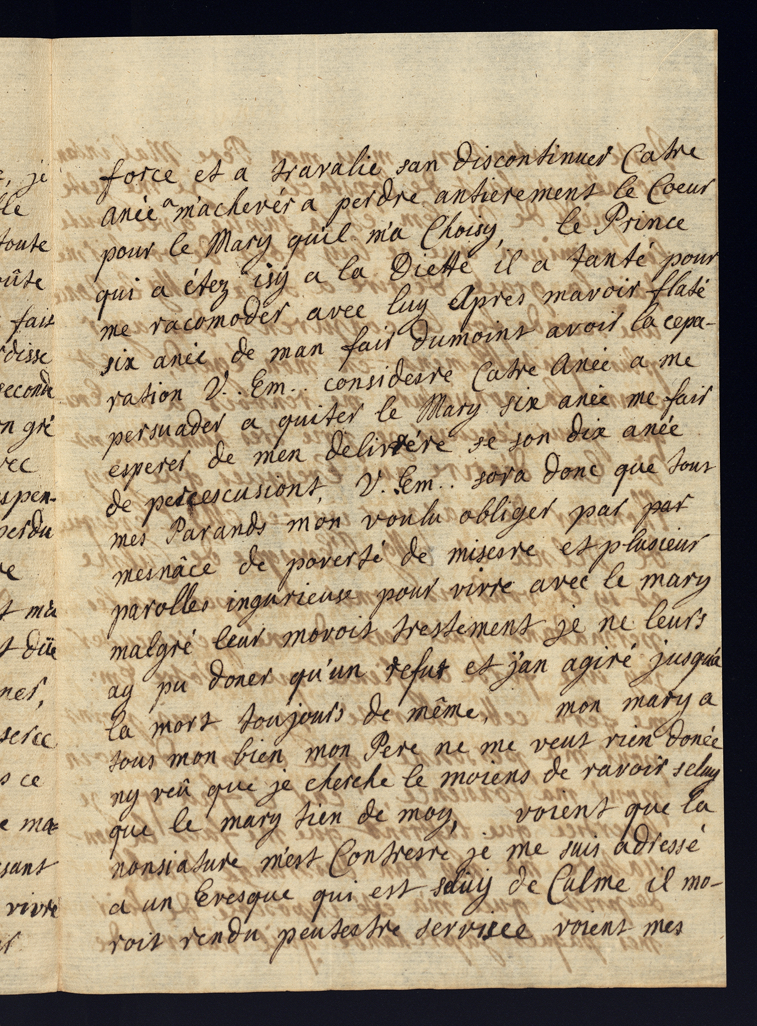 force et a travalié san discontinuer Catre
anée a m'achevér a perdre antierement le Coeur
pour le Mary qu'il m'a Choisy, le Prince
qui a étez isy a la Diette il a tanté pour
me racomoder avec luy Apres mavoir flaté
six anée de man fair dumoint avoir la cepa-
ration V. Em.. consideré Catre Anée a me
persuader a quiter le Mary six anée me fair
esperer de men delivrére se son dix anée
de percescusiont, V. Em.. sora donc que tout
mes Parands mon voulu obliger par par
mesnâce de poverté de misesre et plusieur
parolles ingurieuse pour vivre avec le mary
malgré leur movois trestement je ne leurs
ay pu doner qu'un refut et j'an agiré jusqu'a
la mort toujours de même, mon mary a
tous mon bien mon Pere ne me veut rien donée
ny veû que je cherche le moiens de ravoir seluy
que le mary tien de moy, voient que la
nonsiature m'est Contresre je me suis adressé
a un Evesque qui est seluy de Culme il mo-
roit rendu peutestre servise voient mes
je
lle
toute
oûte
fait
rdisse
seconde
on gré
vec
spen-
perdu
t m'a
t düe
ner,
serce
s ce
e ma=
sant
vivre